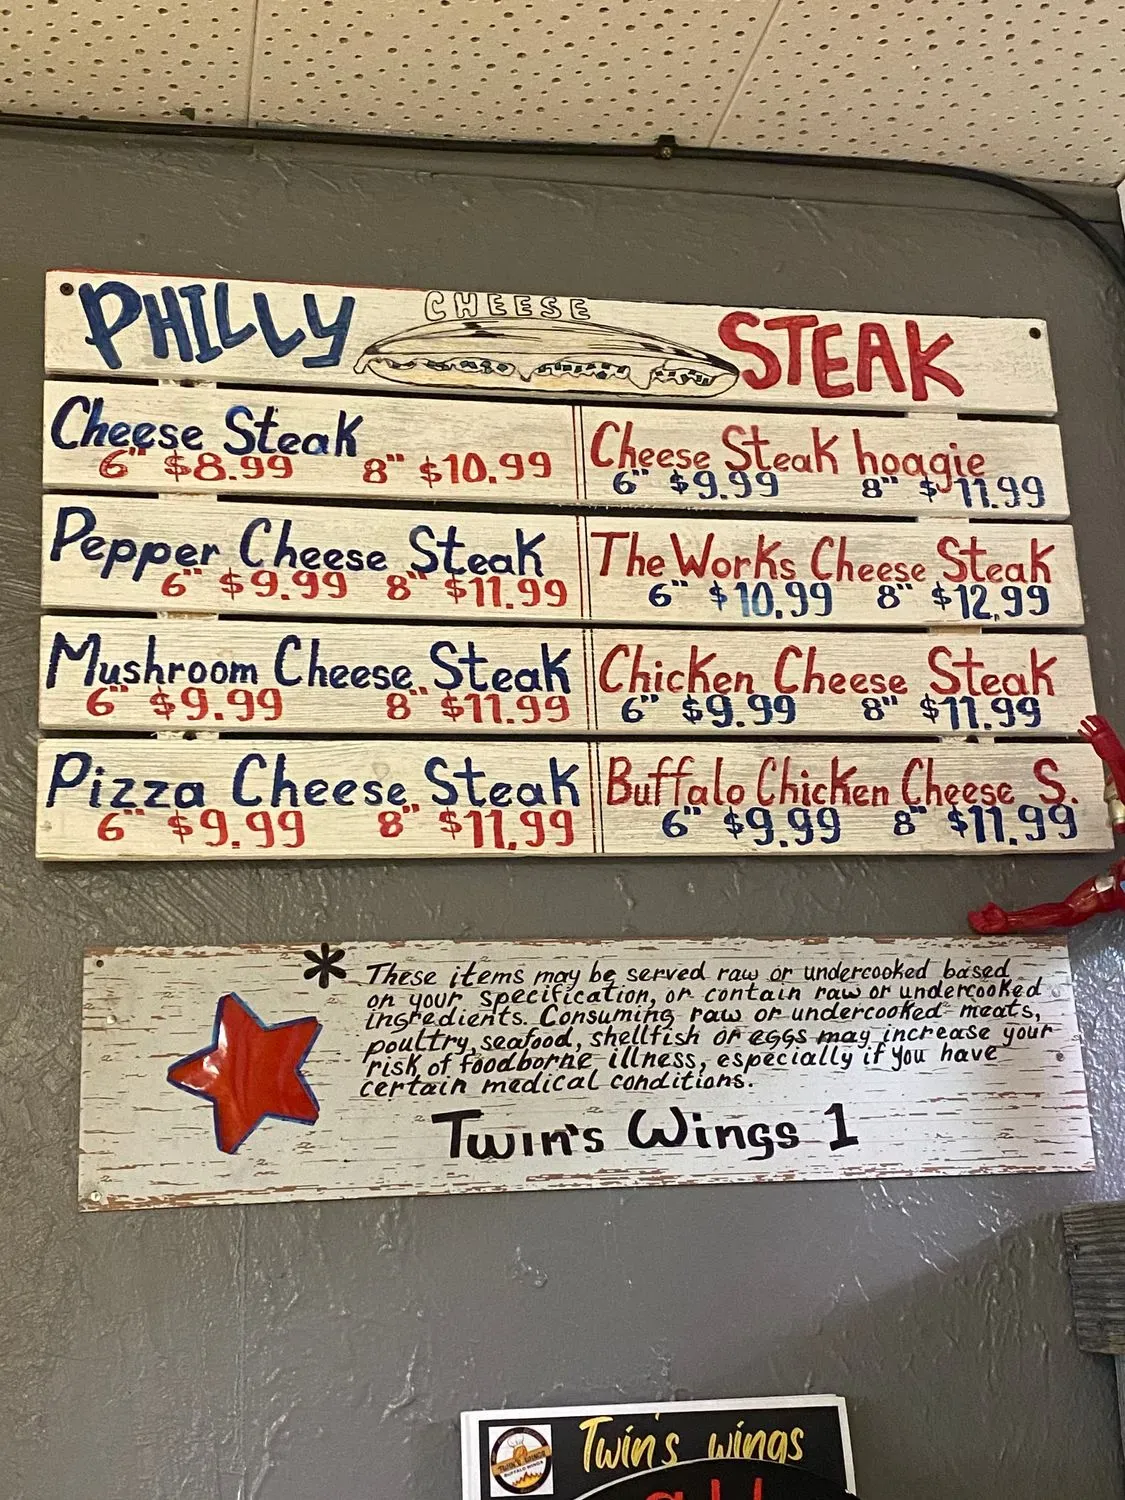 PHILLY CHEESE STEAK
Cheese Steak
6" $8.99 8" $10.99
Cheese Steak hoagie
6" $9.99 8" $11.99
Pepper Cheese Steak
6" $9.99 8" $11.99
The Works Cheese Steak
6" $10.99 8" $12.99
Mushroom Cheese Steak
6" $9.99 8" $11.99
Chicken Cheese Steak
6" $9.99 8" $11.99
Pizza Cheese Steak
6" $9.99 8" $11.99
Buffalo Chicken Cheese S.
6" $9.99 8" $11.99
* These items may be served raw or undercooked based
on your specification, or contain raw or undercooked
ingredients. Consuming raw or undercooked meats,
poultry, seafood, shellfish or eggs may increase your
risk of foodborne illness, especially if you have
certain medical conditions.
Twin's Wings 1
Twin's wings
TWIN'S WINGS
BUFFALO WINGS